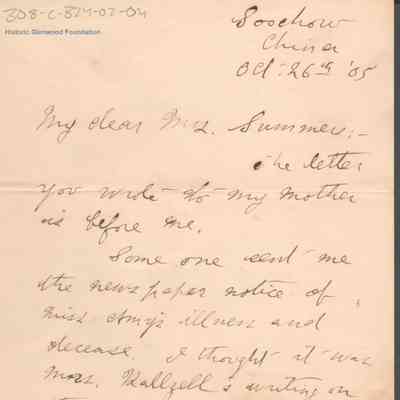 308-C-824-02-04
Historic Glenwood Foundation
Soochow
China
Oct. 26th '05
My dear Mrs. Summers:-
The letter
you wrote to my mother
is before me.
Some one sent me
the newspaper notice of
Miss Amy's illness and
decease. I thought it was
Mrs. writing on